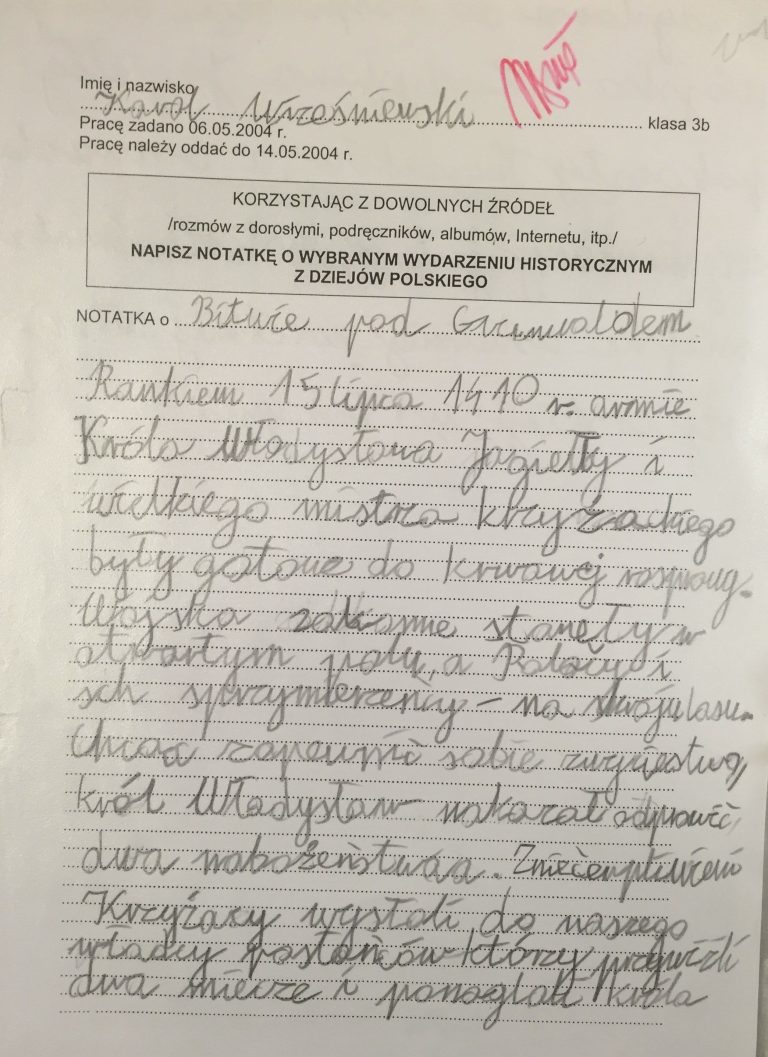 Imię i nazwisko
Karol Wrześniewski klasa 3b
Pracę zadano 06.05.2004 r.
Pracę należy oddać do 14.05.2004 r.
KORZYSTAJĄC Z DOWOLNYCH ŹRÓDEŁ
/rozmów z dorosłymi, podręczników, albumów, Internetu, itp./
NAPISZ NOTATKĘ O WYBRANYM WYDARZENIU HISTORYCZNYM
Z DZIEJÓW POLSKIEGO
NOTATKA o Bitwie pod Grunwaldem
Rankiem 15 lipca 1410 r. armie
Króla Władysława Jagiełły i
wielkiego mistrza krzyżackiego
były gotowe do krwawej rozprawy.
Wojska zakonne stanęły w
otwartym polu, a Polacy i
ich sprzymierzeńcy - na skraju lasu.
Chcąc zapewnić sobie zwycięstwo,
król Władysław nakazał odprawić
dwa nabożeństwa. Zniecierpliwieni
Krzyżacy wysłali do naszego
władcy posłańców którzy przywieźli
dwa miecze i ponaglali króla